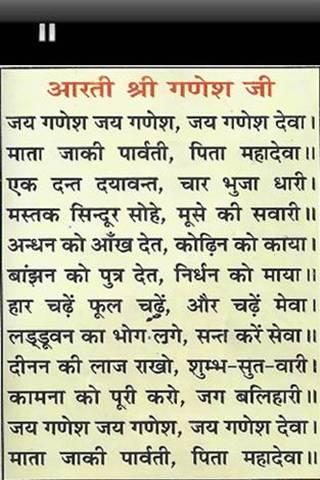 आरती श्री गणेश जी
जय गणेश जय गणेश, जय गणेश देवा।
माता जाकी पार्वती, पिता महादेवा॥
एक दन्त दयावन्त, चार भुजा धारी।
मस्तक सिन्दूर सोहे, मूसे की सवारी॥
अन्धन को आँख देत, कोढ़िन को काया।
बांझन को पुत्र देत, निर्धन को माया॥
हार चढ़ें फूल चढ़ें, और चढ़ें मेवा।
लड्डूवन का भोग लगे, सन्त करें सेवा॥
दीनन की लाज राखो, शुम्भ-सुत-वारी।
कामना को पूरी करो, जग बलिहारी॥
जय गणेश जय गणेश, जय गणेश देवा।
माता जाकी पार्वती, पिता महादेवा॥